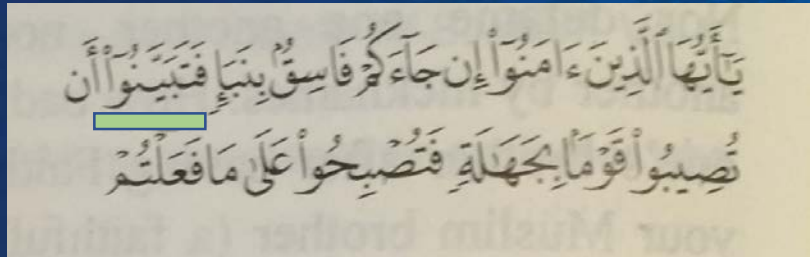 يَٰٓأَيُّهَا ٱلَّذِينَ ءَامَنُوٓا۟ إِن جَآءَكُمْ فَاسِقٌۢ بِنَبَإٍ فَتَبَيَّنُوٓا۟ أَن
تُصِيبُوا۟ قَوْمًۢا بِجَهَٰلَةٍ فَتُصْبِحُوا۟ عَلَىٰ مَا فَعَلْتُمْ